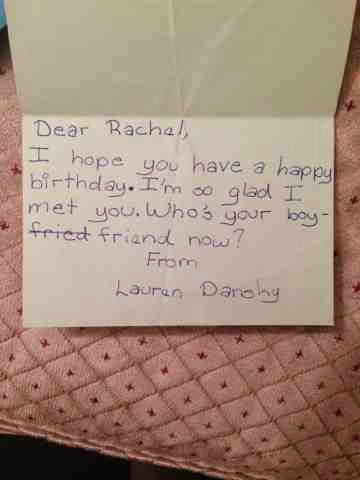 Dear Rachel,
I hope you have a happy
birthday. I'm so glad I
met you. Who's your boy-
fried friend now?
From
Lauren